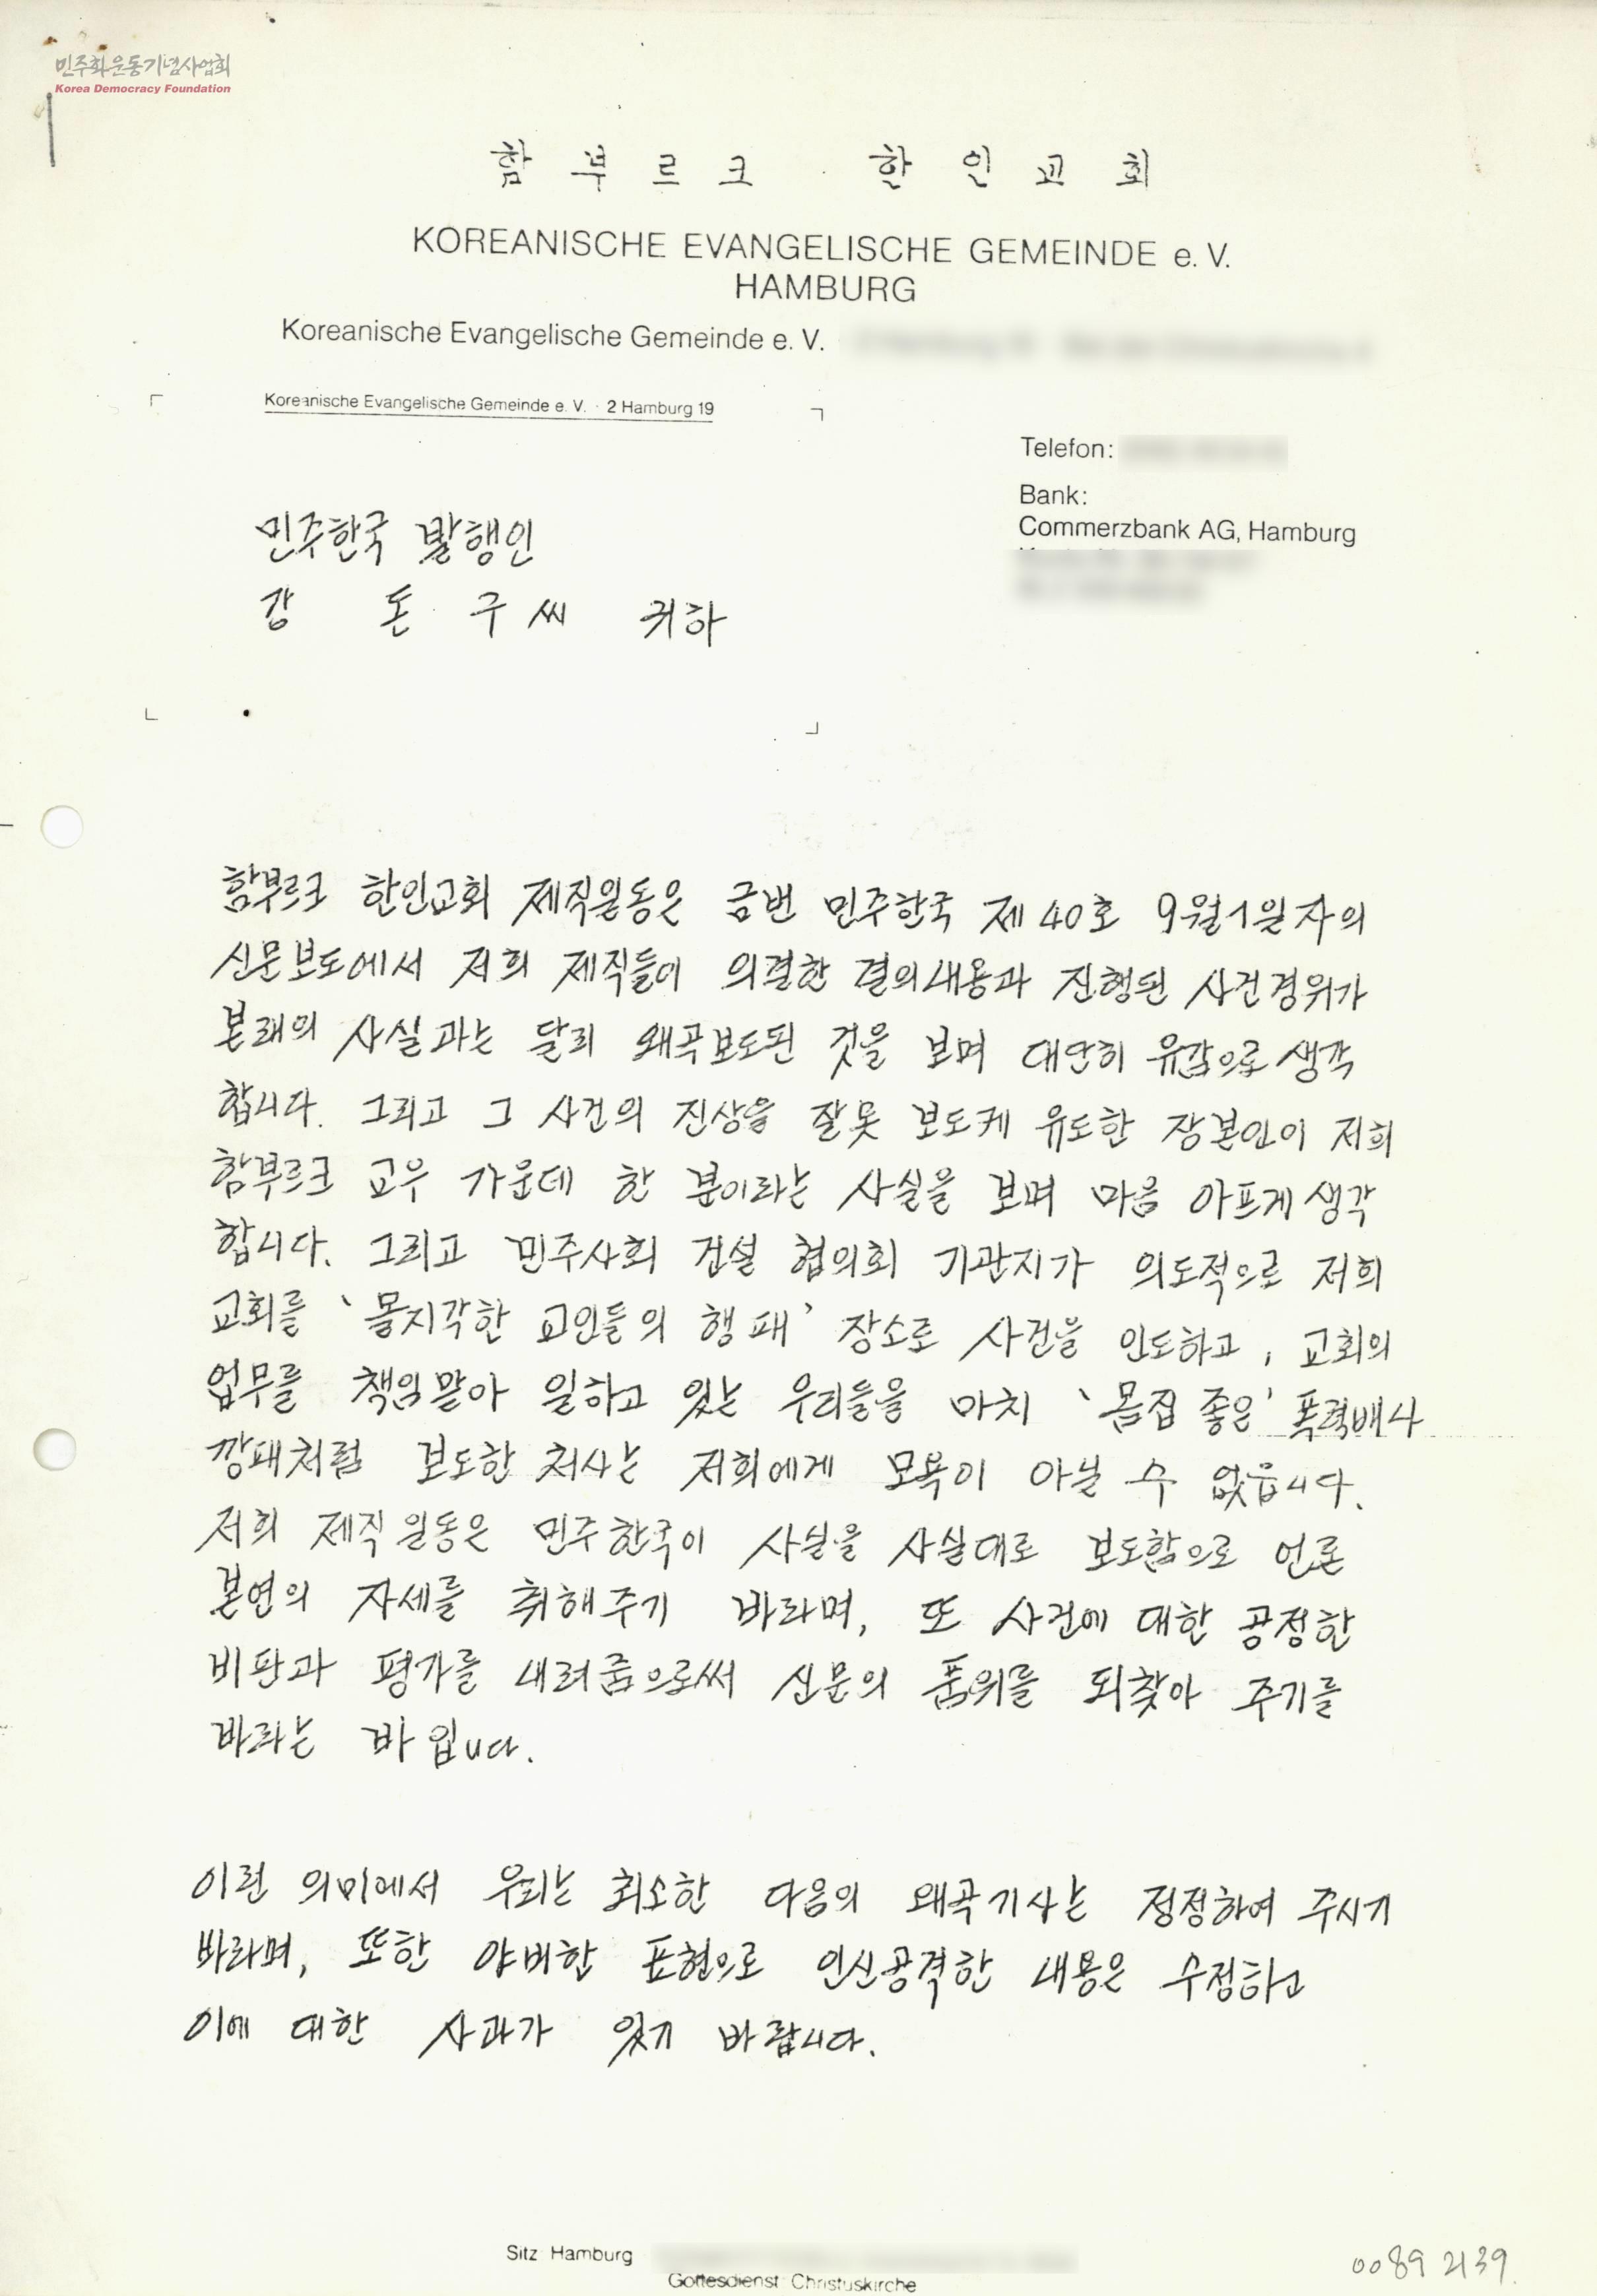 민주화운동기념사업회
Korea Democracy Foundation
함 부 르 크 한 인 교 회
KOREANISCHE EVANGELISCHE GEMEINDE e. V.
HAMBURG
Koreanische Evangelische Gemeinde e. V.
Koreanische Evangelische Gemeinde e. V. · 2 Hamburg 19
Telefon:
Bank:
Commerzbank AG, Hamburg
민주한국 발행인
강 돈 구 씨 귀하
함부르크 한인교회 제직일동은 금번 민주한국 제 40호 9월 1일자의
신문보도에서 저희 제직들이 의결한 결의내용과 진행된 사건경위가
본래의 사실과는 달리 왜곡보도된 것을 보며 대단히 유감으로 생각
합니다. 그리고 그 사건의 진상을 잘못 보도케 유도한 장본인이 저희
함부르크 교우 가운데 한 분이라는 사실을 보며 마음 아프게 생각
합니다. 그리고 민주사회 건설 협의회 기관지가 의도적으로 저희
교회를 '몰지각한 교인들의 행패' 장소로 사건을 인도하고, 교회의
업무를 책임맡아 일하고 있는 우리들을 마치 '몸집 좋은' 폭력배나
깡패처럼 보도한 처사는 저희에게 모욕이 아닐 수 없읍니다.
저희 제직일동은 민주한국이 사실을 사실대로 보도함으로 언론
본연의 자세를 취해주기 바라며, 또 사건에 대한 공정한
비판과 평가를 내려줌으로써 신문의 품위를 되찾아 주기를
바라는 바 입니다.
이런 의미에서 우리는 최소한 다음의 왜곡기사는 정정하여 주시기
바라며, 또한 야비한 표현으로 인신공격한 내용은 수정하고
이에 대한 사과가 있기 바랍니다.
Sitz Hamburg
Gottesdienst Christuskirche
0089 2139